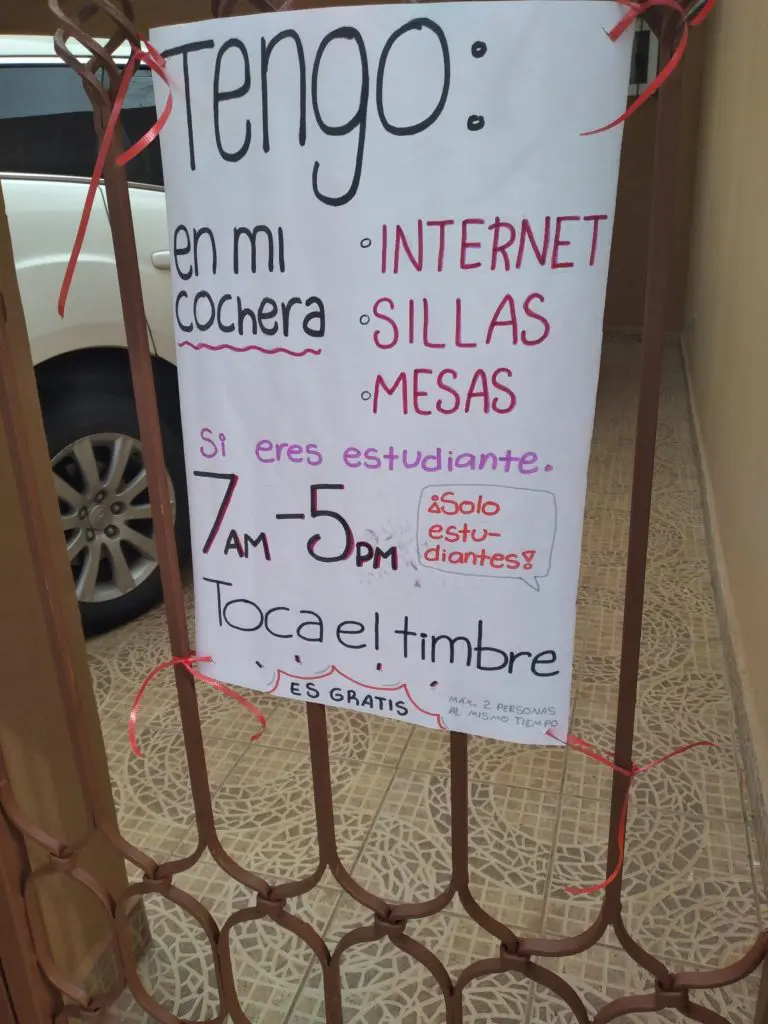 Tengo:
en mi
cochera
◦INTERNET
◦SILLAS
◦MESAS
Si eres estudiante.
7AM-5PM
¡Solo
estu-
diantes!
Toca el timbre
ES GRATIS
MÁX. 2 PERSONAS
AL MISMO TIEMPO